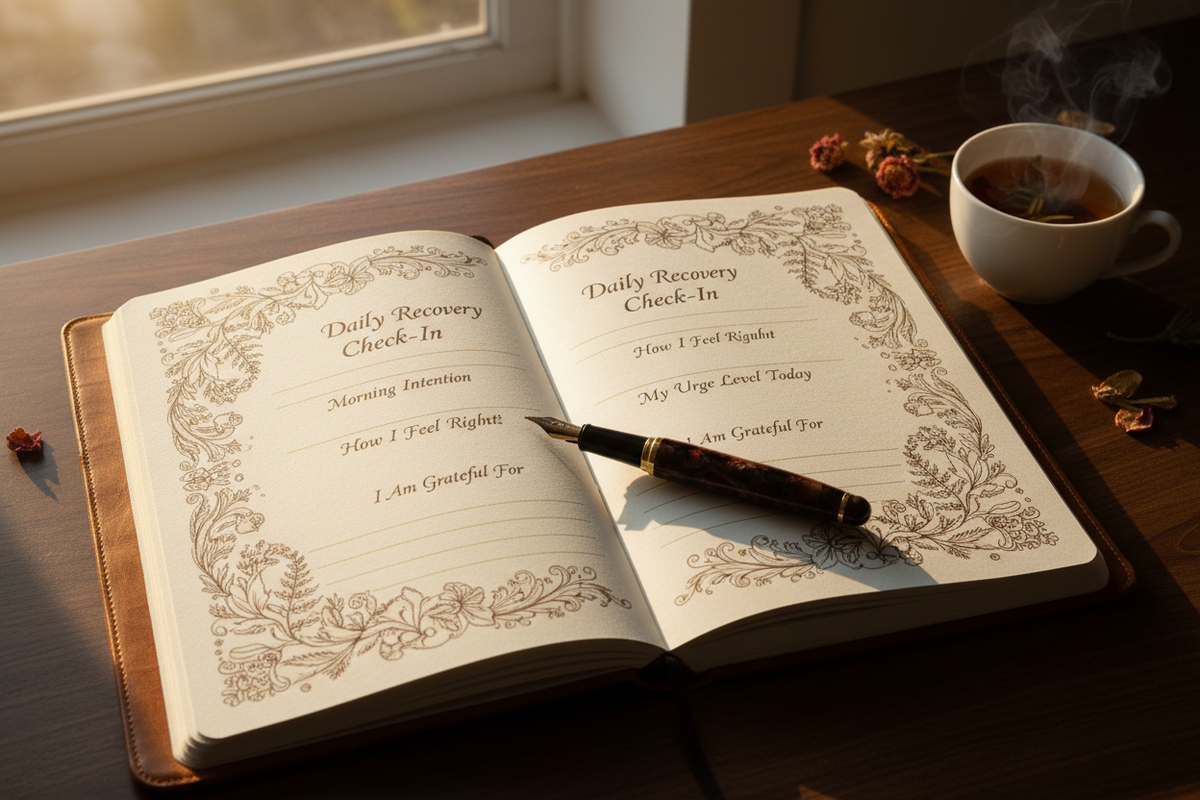 Daily Recovery
Check-In
Morning Intention
How I Feel Right?
I Am Grateful For
Daily Recovery
Check-In
How I Feel Rignht
My Urge Level Today
I Am Grateful For